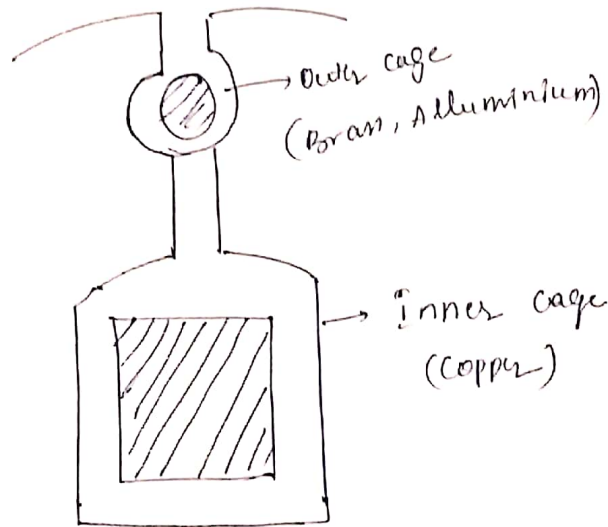 Outer cage
(Brass, Alluminium)
Inner cage
(Copper)